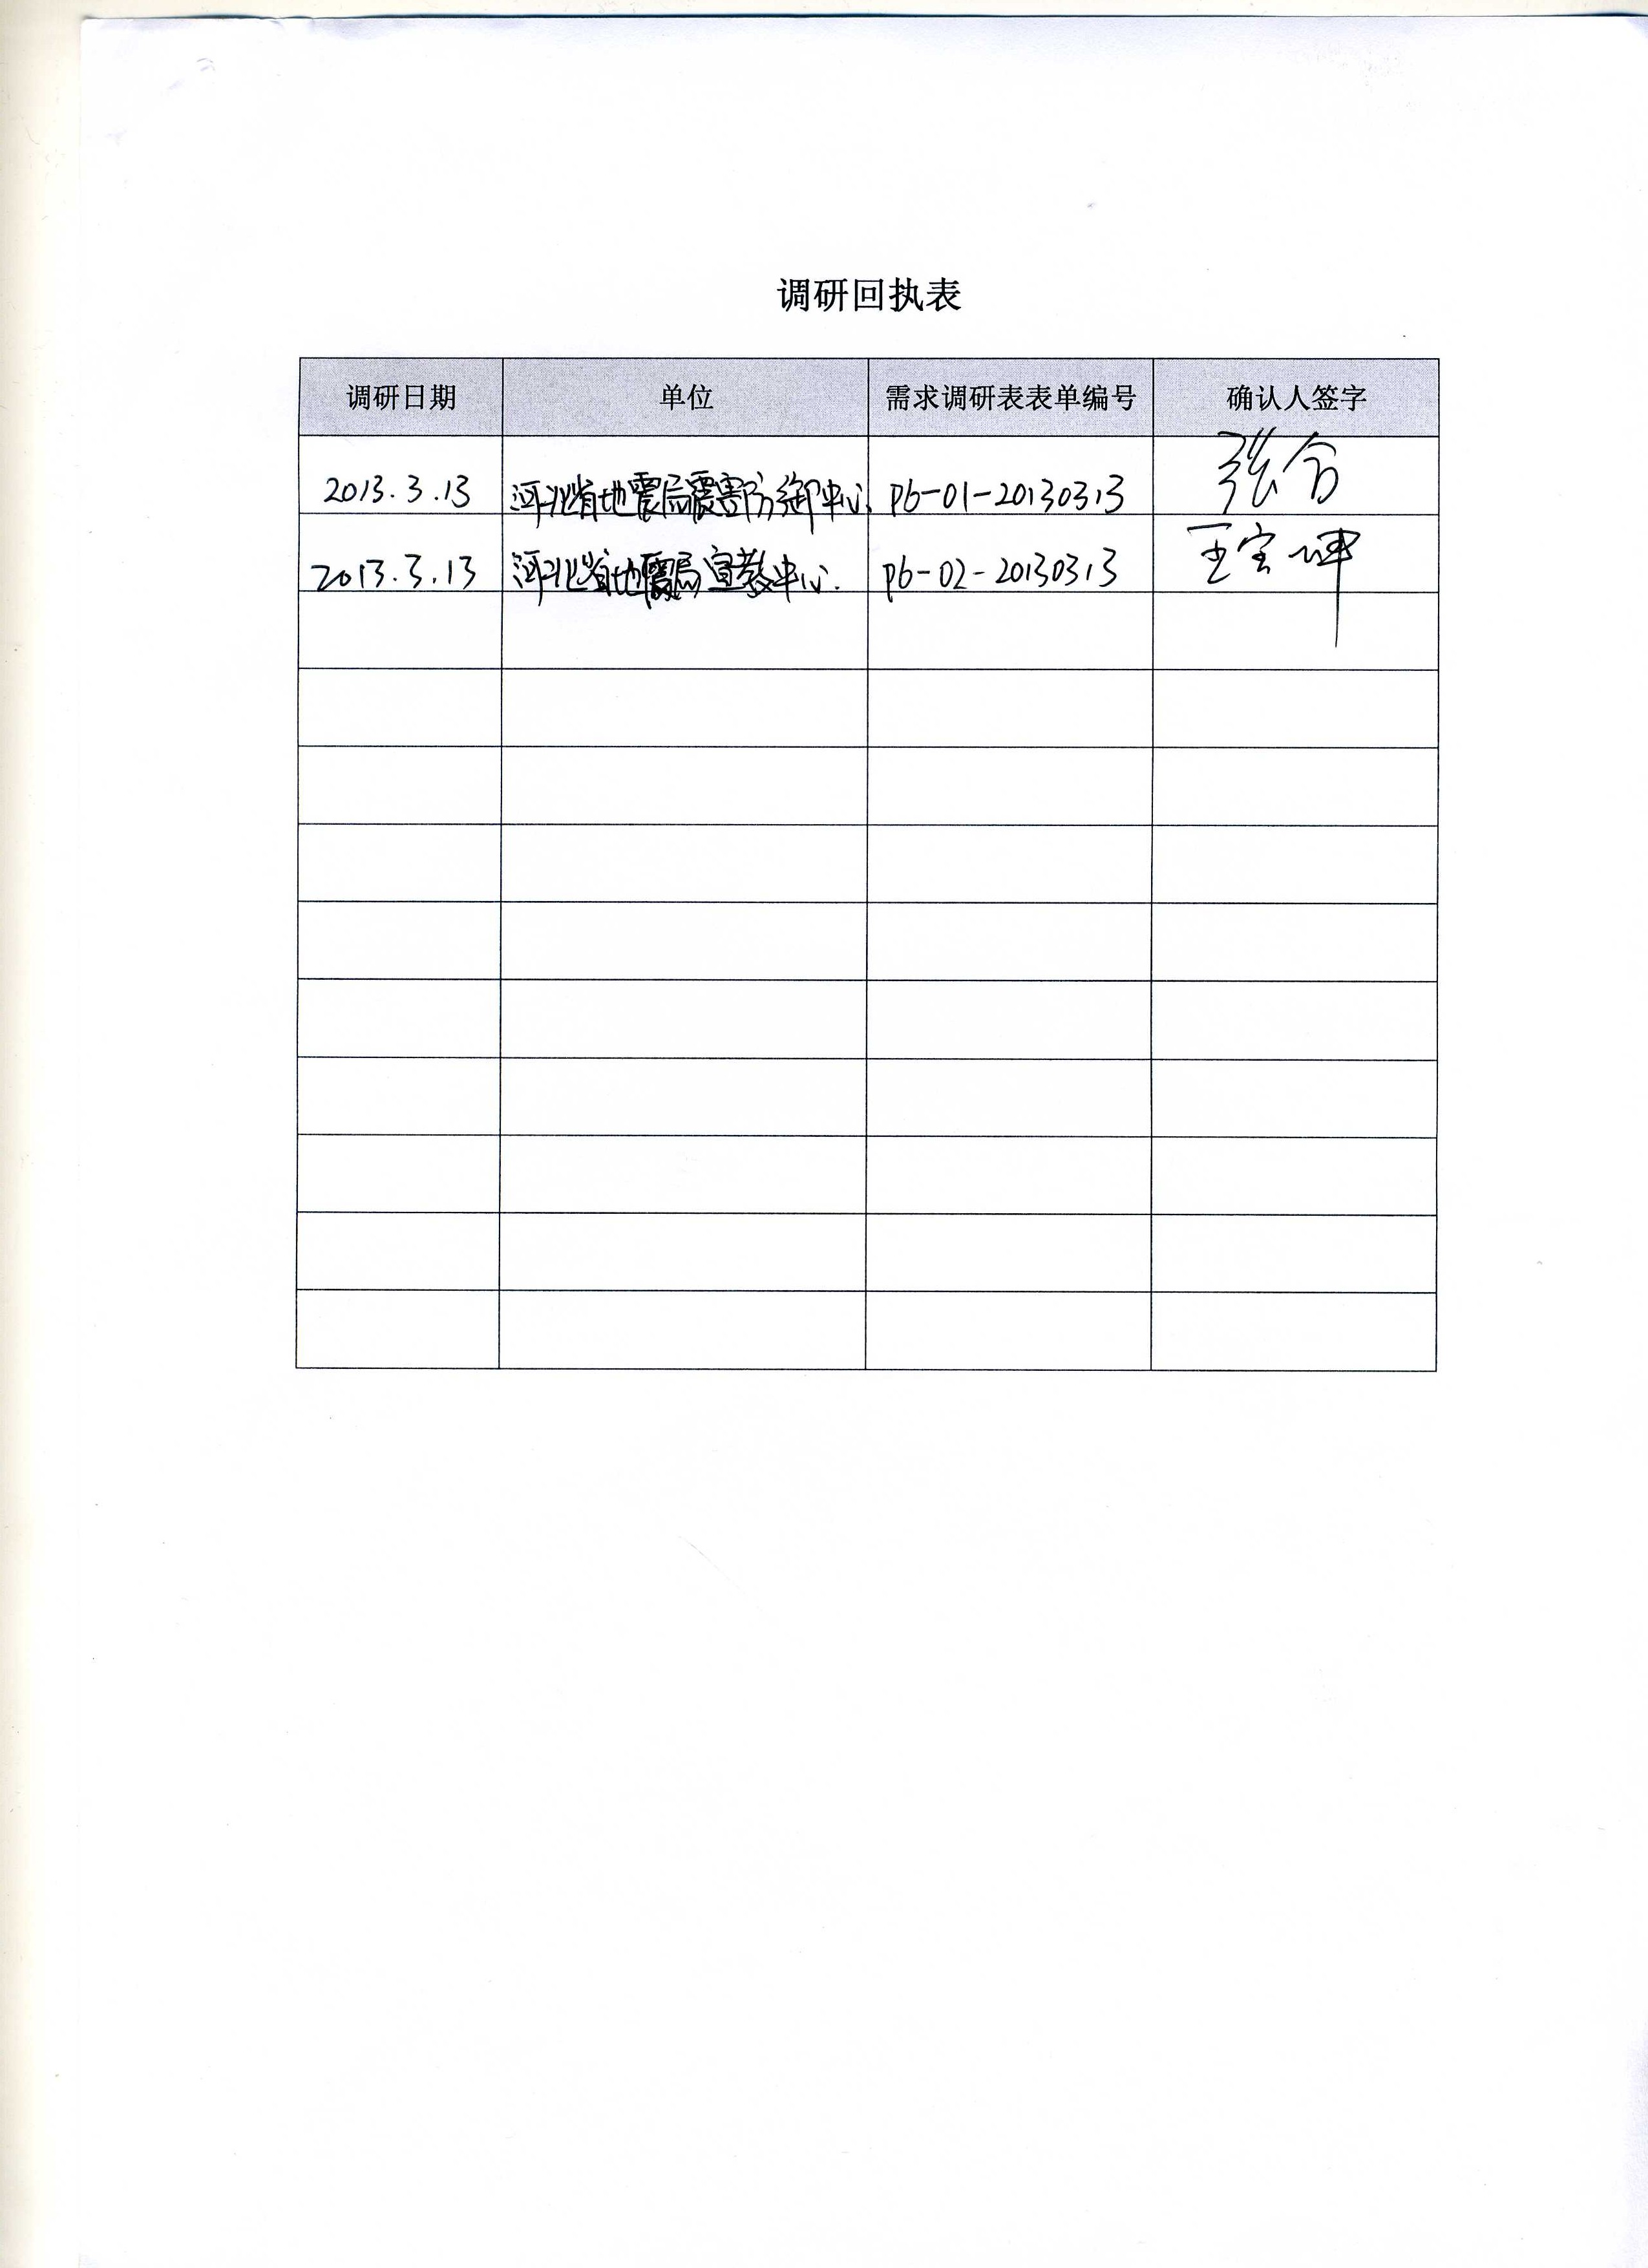 调研回执表
调研日期 单位 需求调研表表单编号 确认人签字
2013.3.13 河北省地震局震害防御中心. P6-01-20130313 张合
2013.3.13 河北省地震局宣教中心. P6-02-20130313 王宝坤